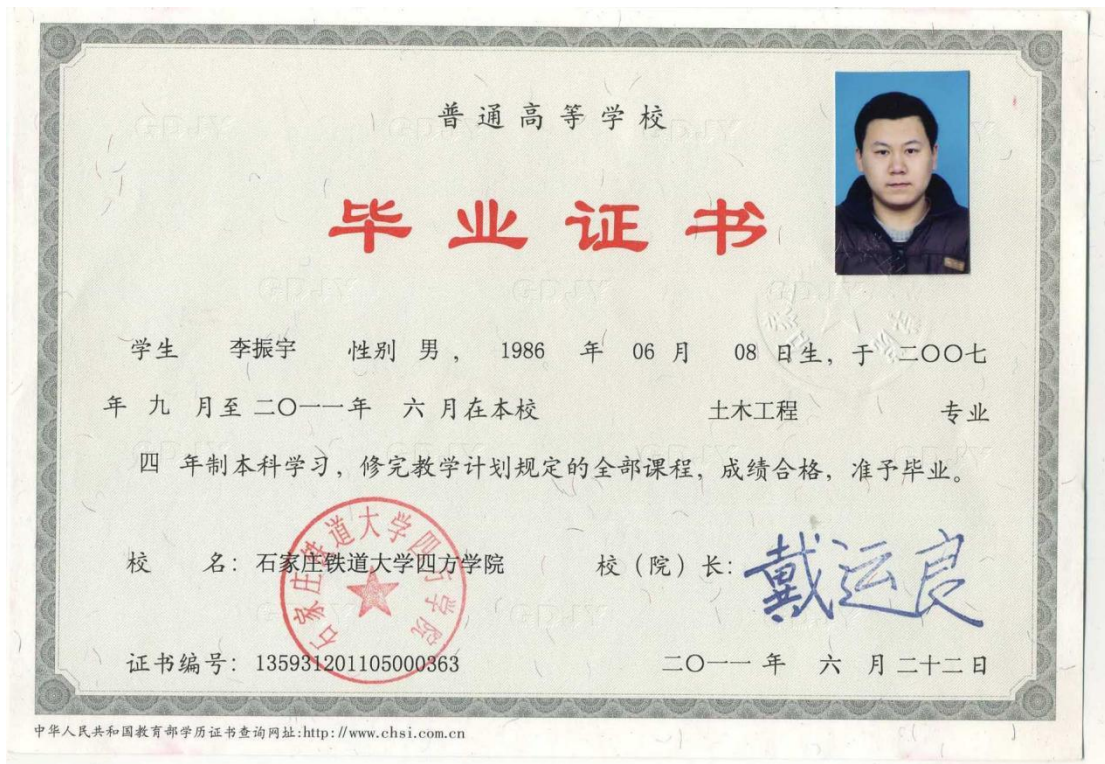 普通高等学校
毕业证书
学生 李振宇 性别 男， 1986 年 06 月 08 日生，于 二〇〇七
年 九 月至 二〇一一年 六 月在本校 土木工程 专业
四 年制本科学习，修完教学计划规定的全部课程，成绩合格，准予毕业。
校 名：石家庄铁道大学四方学院 校（院）长：戴运良
石家庄铁道大学四方学院
证书编号：135931201105000363 二〇一一 年 六 月 二十二日
中华人民共和国教育部学历证书查询网址:http://www.chsi.com.cn